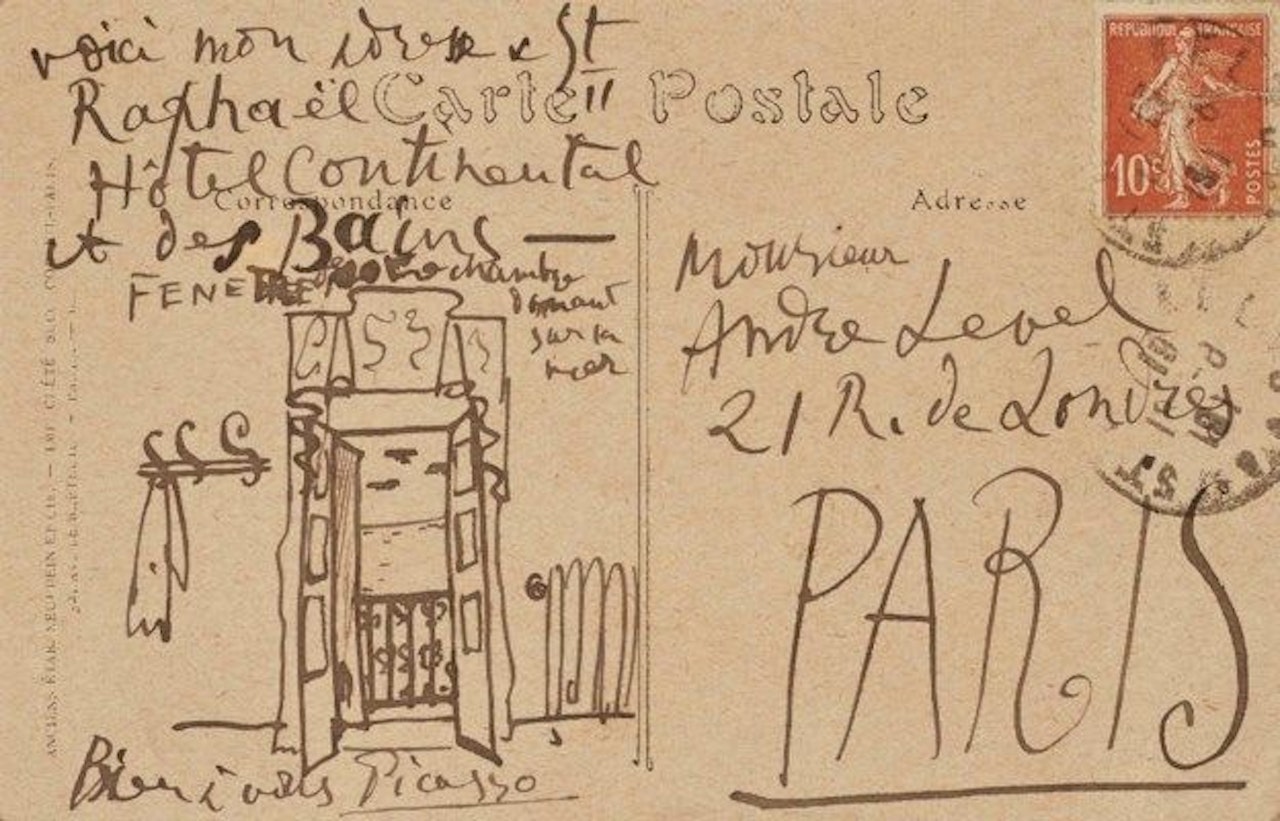 voici mon adresse St
Raphaël
Hôtel Continental
et des Bains —
FENETRE de notre chambre
donnant
sur la
mer
Bien à vous Picasso
Carte Postale
Correspondance
Adresse
REPUBLIQUE FRANÇAISE
10c
POSTES
Monsieur
Andre Level
21 R. de Londres
PARIS